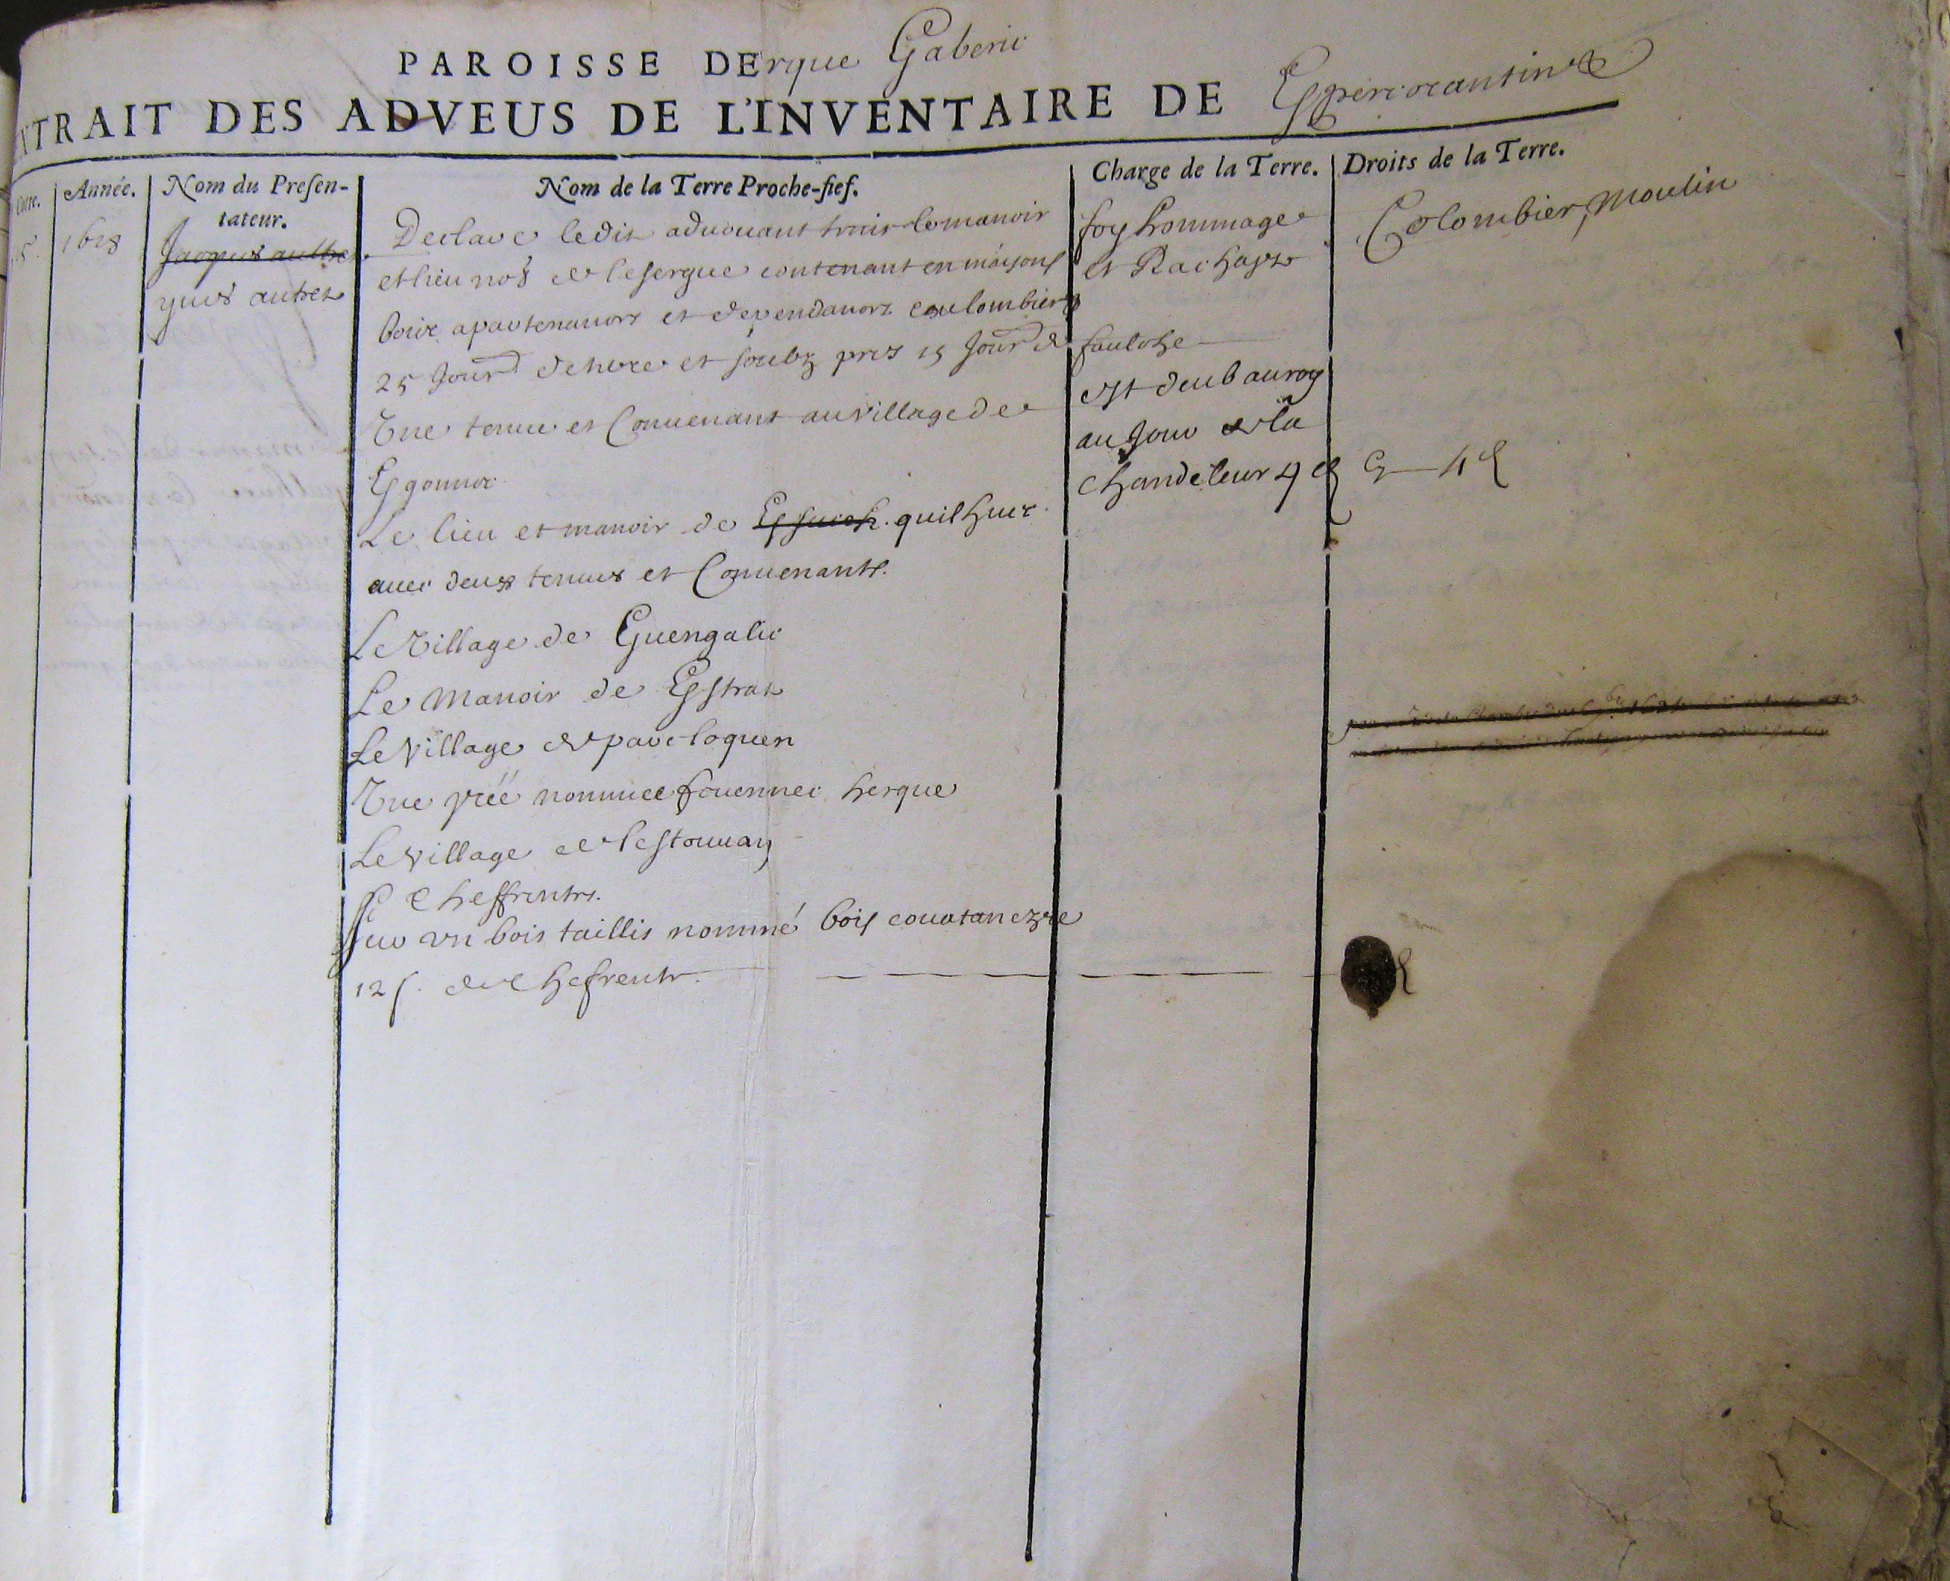 PAROISSE DErque Gaberic
EXTRAIT DES ADVEUS DE L'INVENTAIRE DE
Cotte. Année. Nom du Presen-
tateur. Nom de la Terre Proche-fief. Charge de la Terre. Droits de la Terre.
5. 1618
Jacques
ques autret
Declare ledit advouant tenir le manoir
et lieu nos de lesergue contenant en maisons
bois apartenances et dependances coulombier
25 Jour de terre et soubz prez 15 Jour de
Une tenue et Convenant au village de
Le lieu et manoir de quilhuec
avec deux tenues et Convenants.
Le Village de Guengalic
Le Manoir de
Le Village de parcloquen
Une prée nommee fouennec hergue
Le Village de lestouuan
Chefrentes.
Sur un bois taillis nommé bois couatanezre
12 s. de Chefrente
foy hommage
et Rachapt
faulche
est deub au roy
au Jour de la
Chandeleur 4
Colombier, Moulin
4